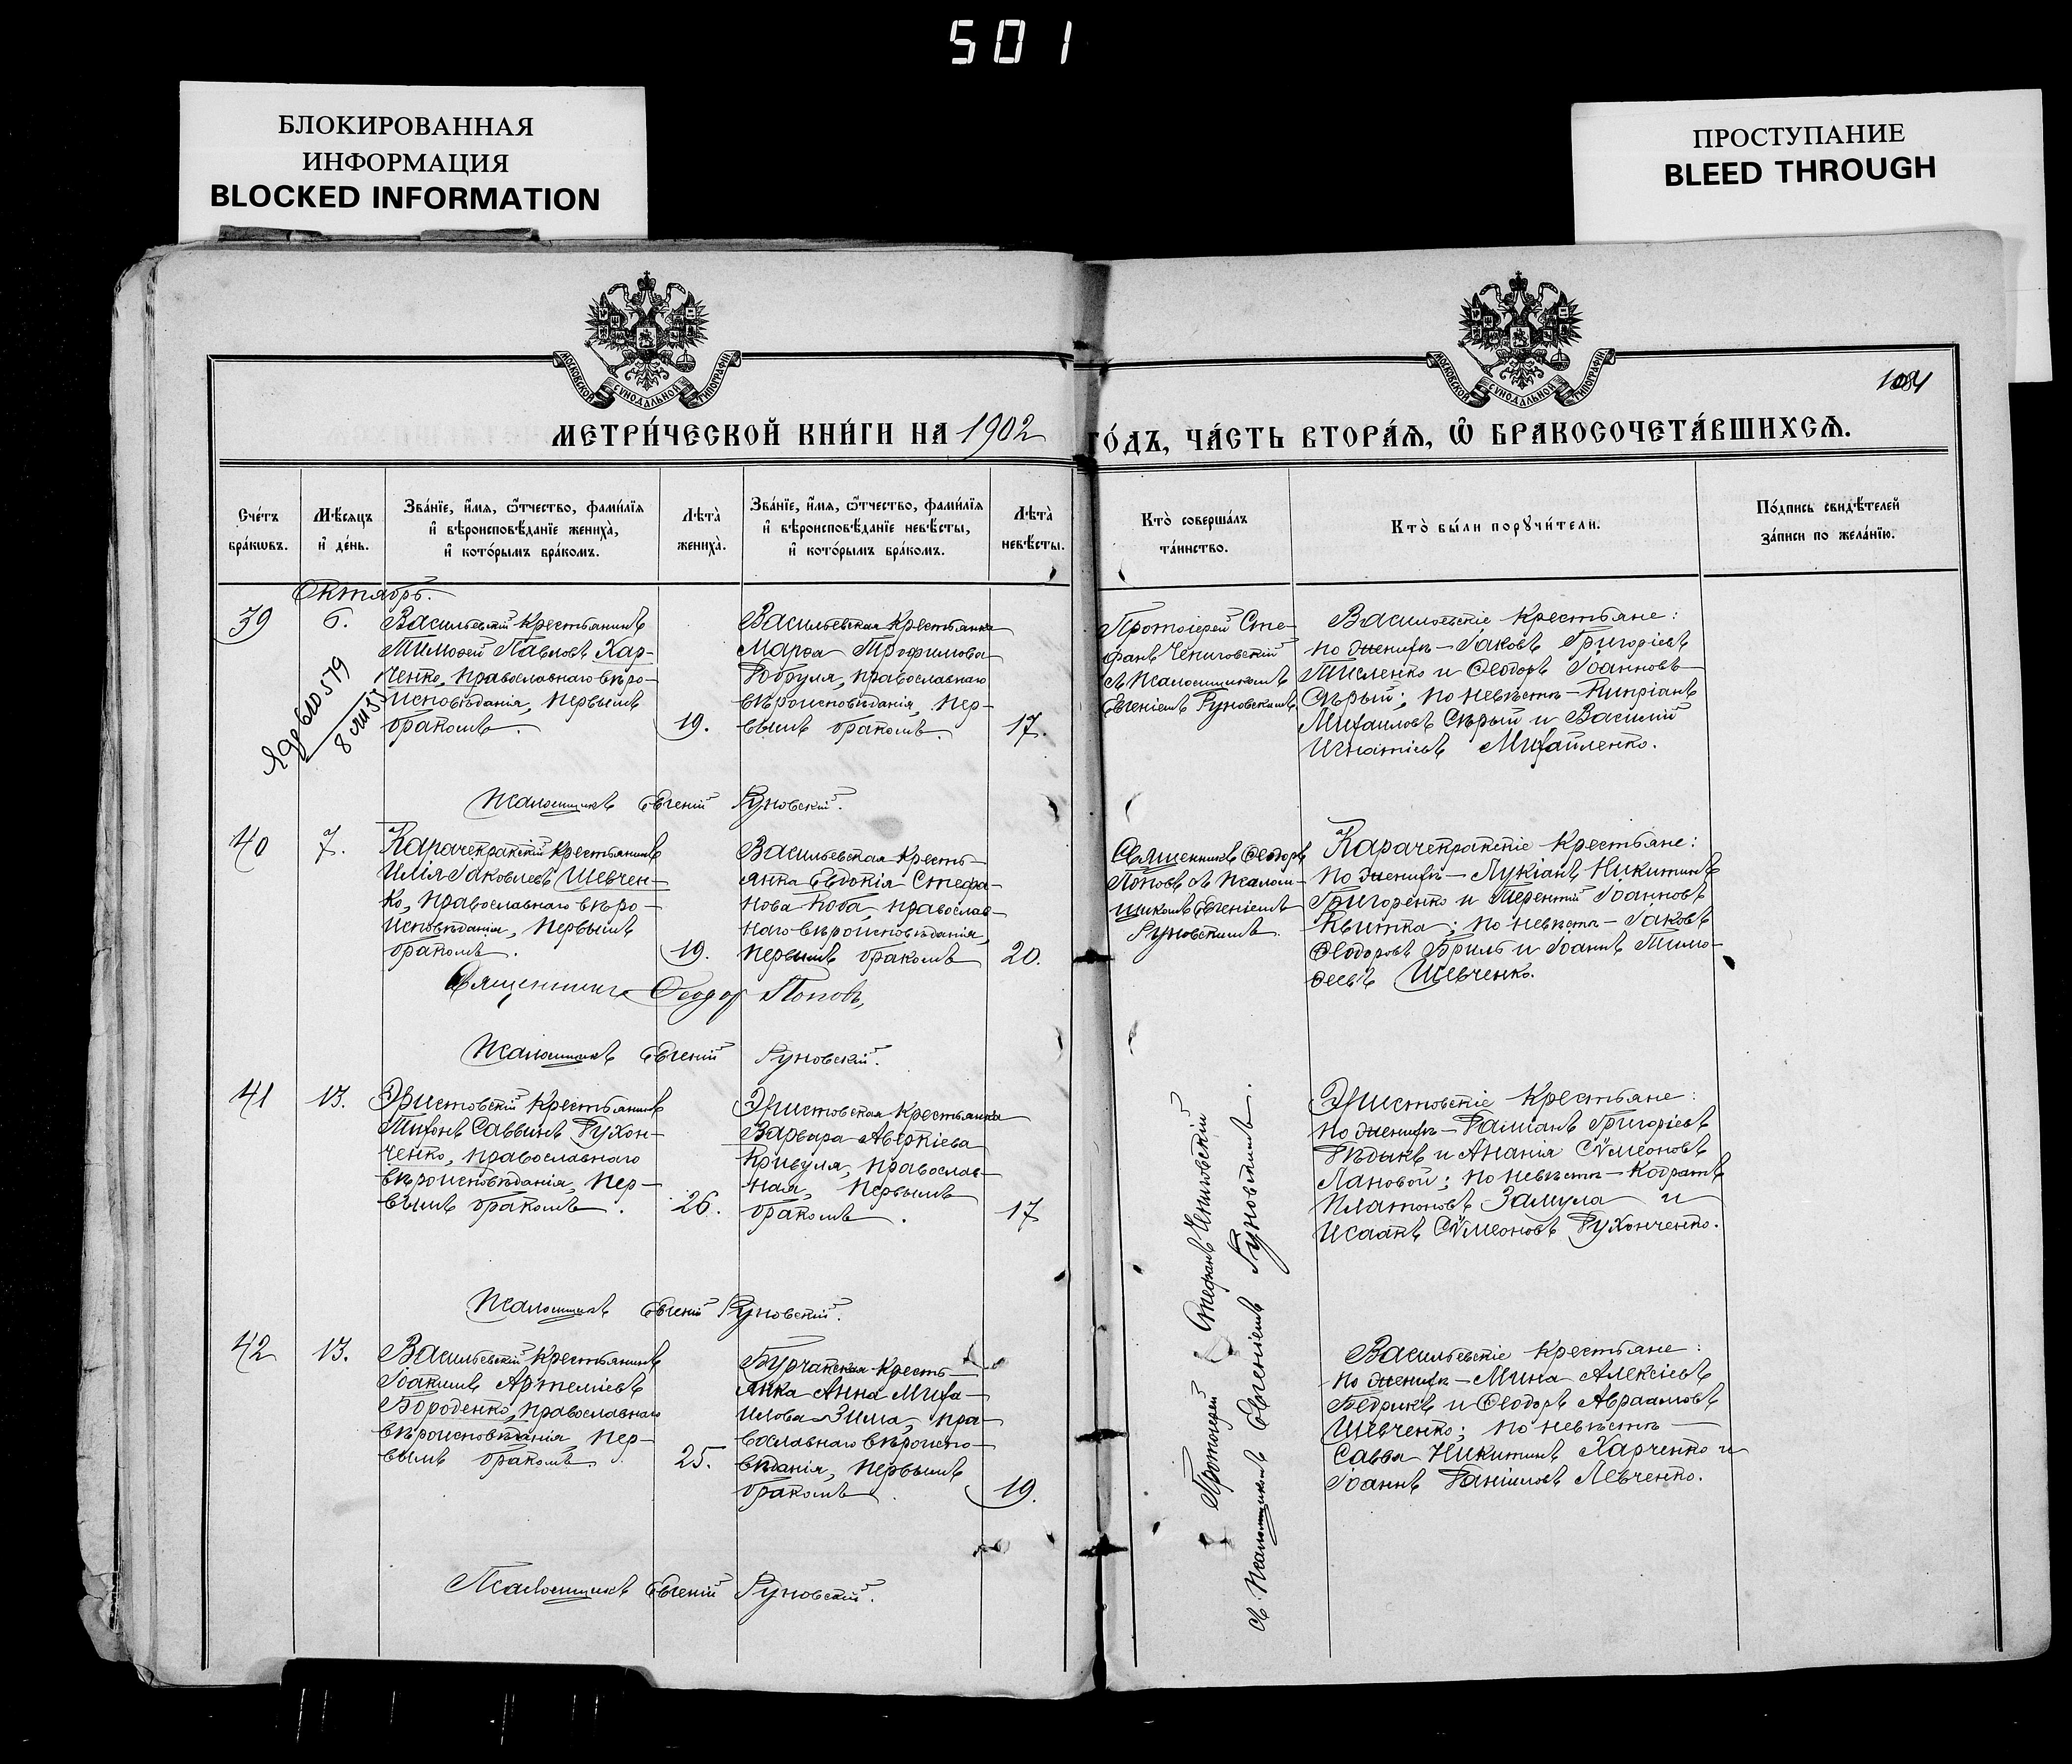 501
БЛОКИРОВАННАЯ
ИНФОРМАЦИЯ
BLOCKED INFORMATION
ПРОСТУПАНИЕ
BLEED THROUGH
МОСКОВСКОЙ СѴНОДАЛЬНОЙ ТИПОГРАФІИ
МОСКОВСКОЙ СѴНОДАЛЬНОЙ ТИПОГРАФІИ
МЕТРИ́ЧЕСКОЙ КНИ́ГИ НА 1902
ГО́ДЪ, ЧА́СТЬ ВТОРА́Ѧ, Ѡ БРАКОСОЧЕТА́ВШИХСѦ.
Сче́тъ
бра́кѡвъ.
Мѣ́сяцъ
и де́нь.
Зва́нїе, и́мѧ, ѻ́тчество, фами́лїѧ
и вѣроисповѣ́данїе жениха̀,
и кото́рымъ бра́комъ.
Лѣта̀
жениха̀.
Зва́нїе, и́мѧ, ѻ́тчество, фами́лїѧ
и вѣроисповѣ́данїе невѣ́сты,
и кото́рымъ бра́комъ.
Лѣта̀
невѣ́сты.
Кто̀ соверша́лъ
та́инство.
Кто̀ бы́ли порꙋчи́тели.
По́дпись свидѣ́телей
за́писи по жела́нїю.
Октябрь.
39
6.
Васильевскій крестьянинъ
Тимоѳей Павловъ Хар-
ченко, православнаго вѣро-
исповѣданія, первымъ
бракомъ.
19.
Васильевская крестьянка
Марѳа Трофимова
православнаго
вѣроисповѣданія, пер-
вымъ бракомъ.
17.
Протоіерей Сте-
фанъ
съ псаломщикомъ
Евгеніемъ Руновскимъ
Васильевскіе крестьяне:
по женихѣ – Іаковъ Григорьевъ
Тисленко и Ѳеодоръ Іоанновъ
Сѣрый; по невѣстѣ – Кипріанъ
Михаиловъ Сѣрый и Василій
Игнатіевъ Михайленко.
Псаломщикъ Евгеній Руновскій.
40
7.
Карачекракскій крестьянинъ
Илія Іаковлевъ Шевчен-
ко, православнаго вѣро-
исповѣданія, первымъ
бракомъ.
19.
Васильевская кресть-
янка Евдокія Стефа-
нова православ-
наго вѣроисповѣданія,
первымъ бракомъ
20.
Священникъ Ѳеодоръ
Поповъ съ псалом-
щикомъ Евгеніемъ
Руновскимъ.
Карачекракскіе крестьяне:
по женихѣ – Лукіанъ Никитинъ
Григоренко и Терентій Іоанновъ
Квитка; по невѣстѣ – Іаковъ
Ѳеодоровъ Бриль и Іоаннъ Тимо-
ѳеевъ Шевченко.
Священникъ Ѳеодоръ Поповъ,
Псаломщикъ Евгеній Руновскій.
41
13.
Эристовскій крестьянинъ
Тихонъ Саввинъ Духон-
ченко, православнаго
вѣроисповѣданія, пер-
вымъ бракомъ.
26.
Эристовская крестьянка
Варвара Аверкіева
Кривуля, православ-
ная, первымъ
бракомъ.
17
Эристовскіе крестьяне:
по женихѣ – Даміанъ Григорьевъ
Дѣдыкъ и Ананія Сѵмеоновъ
Лановой; по невѣстѣ – Кодратъ
Платоновъ Замула и
Исаакъ Сѵмеоновъ Духонченко.
Псаломщикъ Евгеній Руновскій.
42
13.
Васильевскій крестьянинъ
Іоакимъ Артеміевъ
Бороденко, православнаго
вѣроисповѣданія, пер-
вымъ бракомъ.
25.
Бурчакская кресть-
янка Анна Миха-
илова Зима, пра-
вославнаго вѣроиспо-
вѣданія, первымъ
бракомъ.
19.
Протоіерей Стефанъ
съ псаломщикомъ Евгеніемъ Руновскимъ.
Васильевскіе крестьяне:
по женихѣ – Мина Алексіевъ
Бедрикъ и Ѳеодоръ Авраамовъ
Шевченко; по невѣстѣ –
Савва Никитинъ Харченко и
Іоаннъ Даніиловъ Левченко.
Псаломщикъ Евгеній Руновскій.